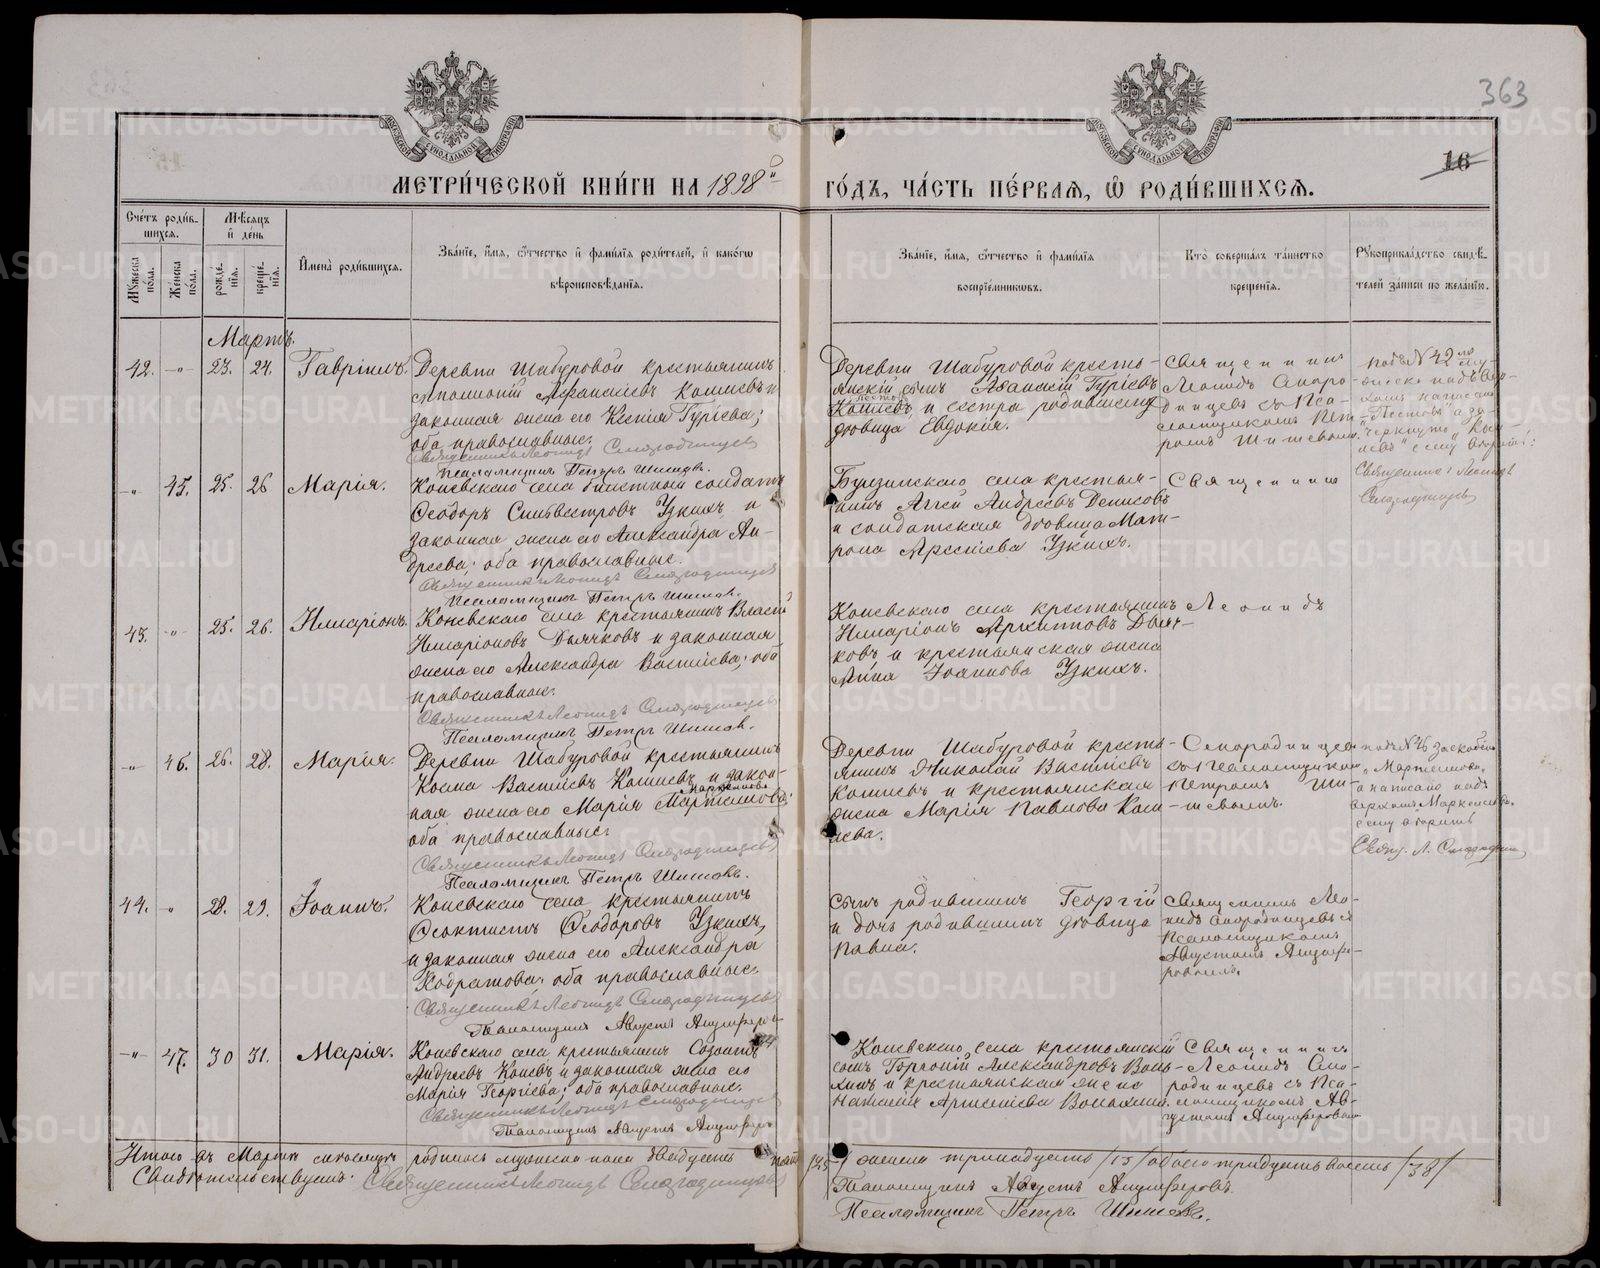 363
16
МЕТРИ́ЧЕСКОЙ КНИ́ГИ НА 1898й ГО́ДЪ, ЧА́СТЬ ПЕ́РВАЯ, Ѡ РОДИ́ВШИХСЯ.
Сче́тъ роди́в-
шихся.
Мѣсяцъ
и де́нь
Мꙋ́жеска по́ла.
Же́нска по́ла.
рожде́-
нія.
креще́-
нія.
И҆мена̀ роди́вшихся.
Зва́ніе, и҆́мя, ѻ҆́тчество и҆ фами́лія роди́телей, и҆ како́гѡ
вѣроисповѣ́данія.
Зва́ніе, и҆́мя, ѻ҆́тчество и҆ фами́лія
воспріе́мниковъ.
Кто̀ соверша́лъ та́инство
креще́нія.
Рꙋкоприкла́дство свидѣ́-
телей за́писи по жела́нію.
Мартъ.
42. -"- 23. 24. Гавріилъ.
Деревни Шабуровой крестьянинъ
Аѳанасіевъ Копіевъ и
законная жена его Ксенія Гуріева;
оба православные.
Священникъ Леонидъ Смородинцевъ
Псаломщикъ Петръ Шишовъ.
Деревни Шабуровой кресть-
янскій сынъ Аѳанасій Гуріевъ
и сестра родившему
дѣвица Евдокія.
Священникъ
Леонидъ Сморо-
динцевъ съ Пса-
ломщикомъ Пет-
ромъ Шишовымъ.
Подъ № 42мъ
написано
"Пестовъ" а за-
черкнуто
сему вѣрить:
Священникъ Леонидъ
Смородинцевъ
-"- 45. 25. 26 Марія.
Коневскаго села билетный солдатъ
Ѳеодоръ Сильвестровъ Узкихъ и
законная жена его Александра Ан-
дреева; оба православные.
Священникъ Леонидъ Смородинцевъ
Псаломщикъ Петръ Шишовъ.
села крестья-
нинъ Аггей Андреевъ Денисовъ
и солдатская дѣвица Мат-
рона Арсеніева Узкихъ.
Священникъ
43. -"- 25. 26. Иларіонъ.
Коневскаго села крестьянинъ Власій
Иларіоновъ Дьячковъ и законная
жена его Александра Васильева; оба
православные.
Священникъ Леонидъ Смородинцевъ
Псаломщикъ Петръ Шишовъ.
Коневскаго села крестьянинъ
Иларіонъ Архиповъ Дьяч-
ковъ и крестьянская жена
Анна Іоаннова Узкихъ.
Леонидъ
-"- 46. 26. 28. Марія.
Деревни Шабуровой крестьянинъ
Косма Васильевъ Копіевъ и закон-
ная жена его Марія
оба православные.
Священникъ Леонидъ Смородинцевъ
Псаломщикъ Петръ Шишовъ.
Деревни Шабуровой кресть-
янинъ Николай Васильевъ
Копіевъ и крестьянская
жена Марія Павлова Коп-
іева.
Смородинцевъ
съ Псаломщикомъ
Петромъ Ши-
шовымъ.
подъ № 46
а написано надъ
сему вѣрить
Свящ. Л. Смородинцевъ
44. -"- 28. 29. Іоаннъ.
Коневскаго села крестьянинъ
Ѳеоктистъ Ѳеодоровъ Узкихъ
и законная жена его Александра
Кодратова; оба православные.
Священникъ Леонидъ Смородинцевъ
Псаломщикъ Августъ Анциферовъ
Сынъ родившимъ Георгій
и дочь родившимъ дѣвица
Павла.
Священникъ Лео-
нидъ Смородинцевъ съ
Псаломщикомъ
Августомъ Анцифе-
ровымъ.
-"- 47. 30 31. Марія.
Коневскаго села крестьянинъ Созонтъ
Андреевъ Коневъ и законная жена его
Марія Георгіева; оба православные.
Священникъ Леонидъ Смородинцевъ
Псаломщикъ Августъ Анциферовъ
Коневскаго села крестьянскій
сынъ Александровъ
и крестьянская жена
Наталія Арсеніева
Священникъ
Леонидъ Смо-
родинцевъ съ Пса-
ломщикомъ Ав-
густомъ Анциферовымъ
Итого въ Мартѣ мѣсяцѣ родилось мужеска пола двадцать пять /25/ женска тринадцать /13/ обоего тридцать восемь /38/
Свидѣтельствуемъ: Священникъ Леонидъ Смородинцевъ
Псаломщикъ Августъ Анциферовъ.
Псаломщикъ Петръ Шишовъ.